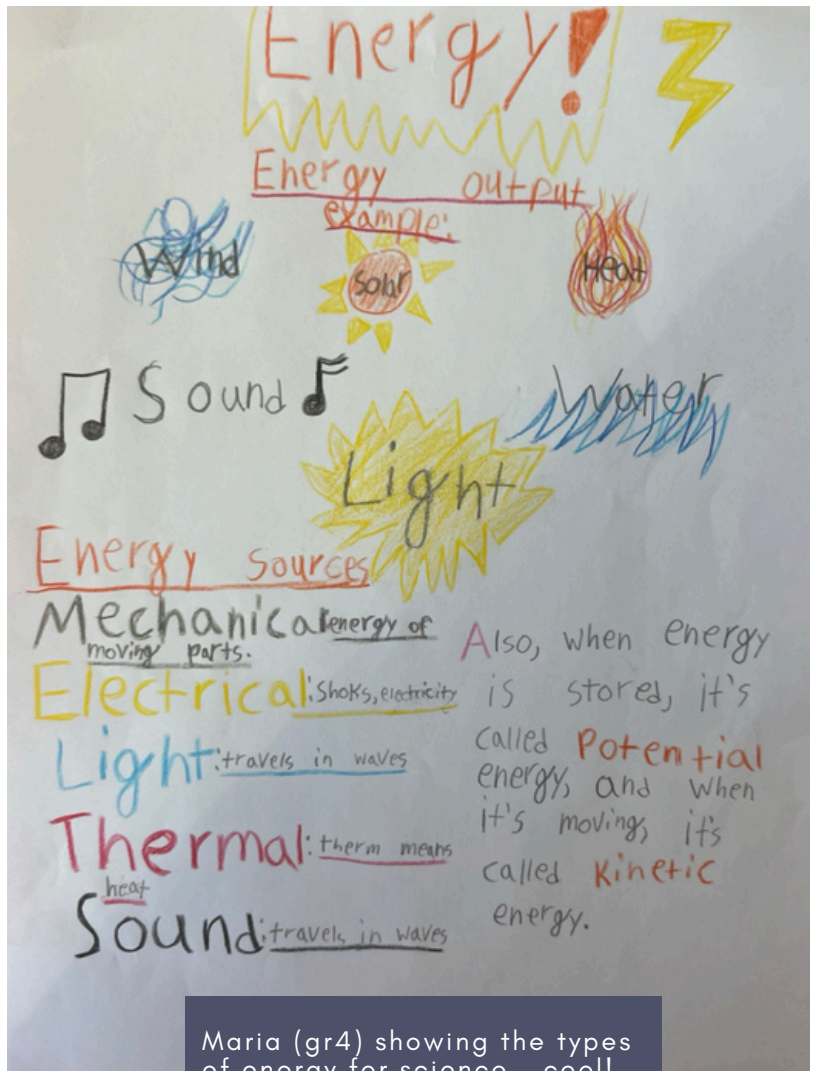 Energy!
Energy output
example:
Wind
Solar
Heat
Sound
Water
Light
Energy Sources
Mechanical energy of
moving parts.
Electrical: Shoks, electricity
Light: travels in waves
Thermal: therm means
heat
Sound: travels in waves
Also, when energy
is stored, it's
called Potential
energy, and when
it's moving, it's
called Kinetic
energy.
Maria (gr4) showing the types
of energy for science - cool!